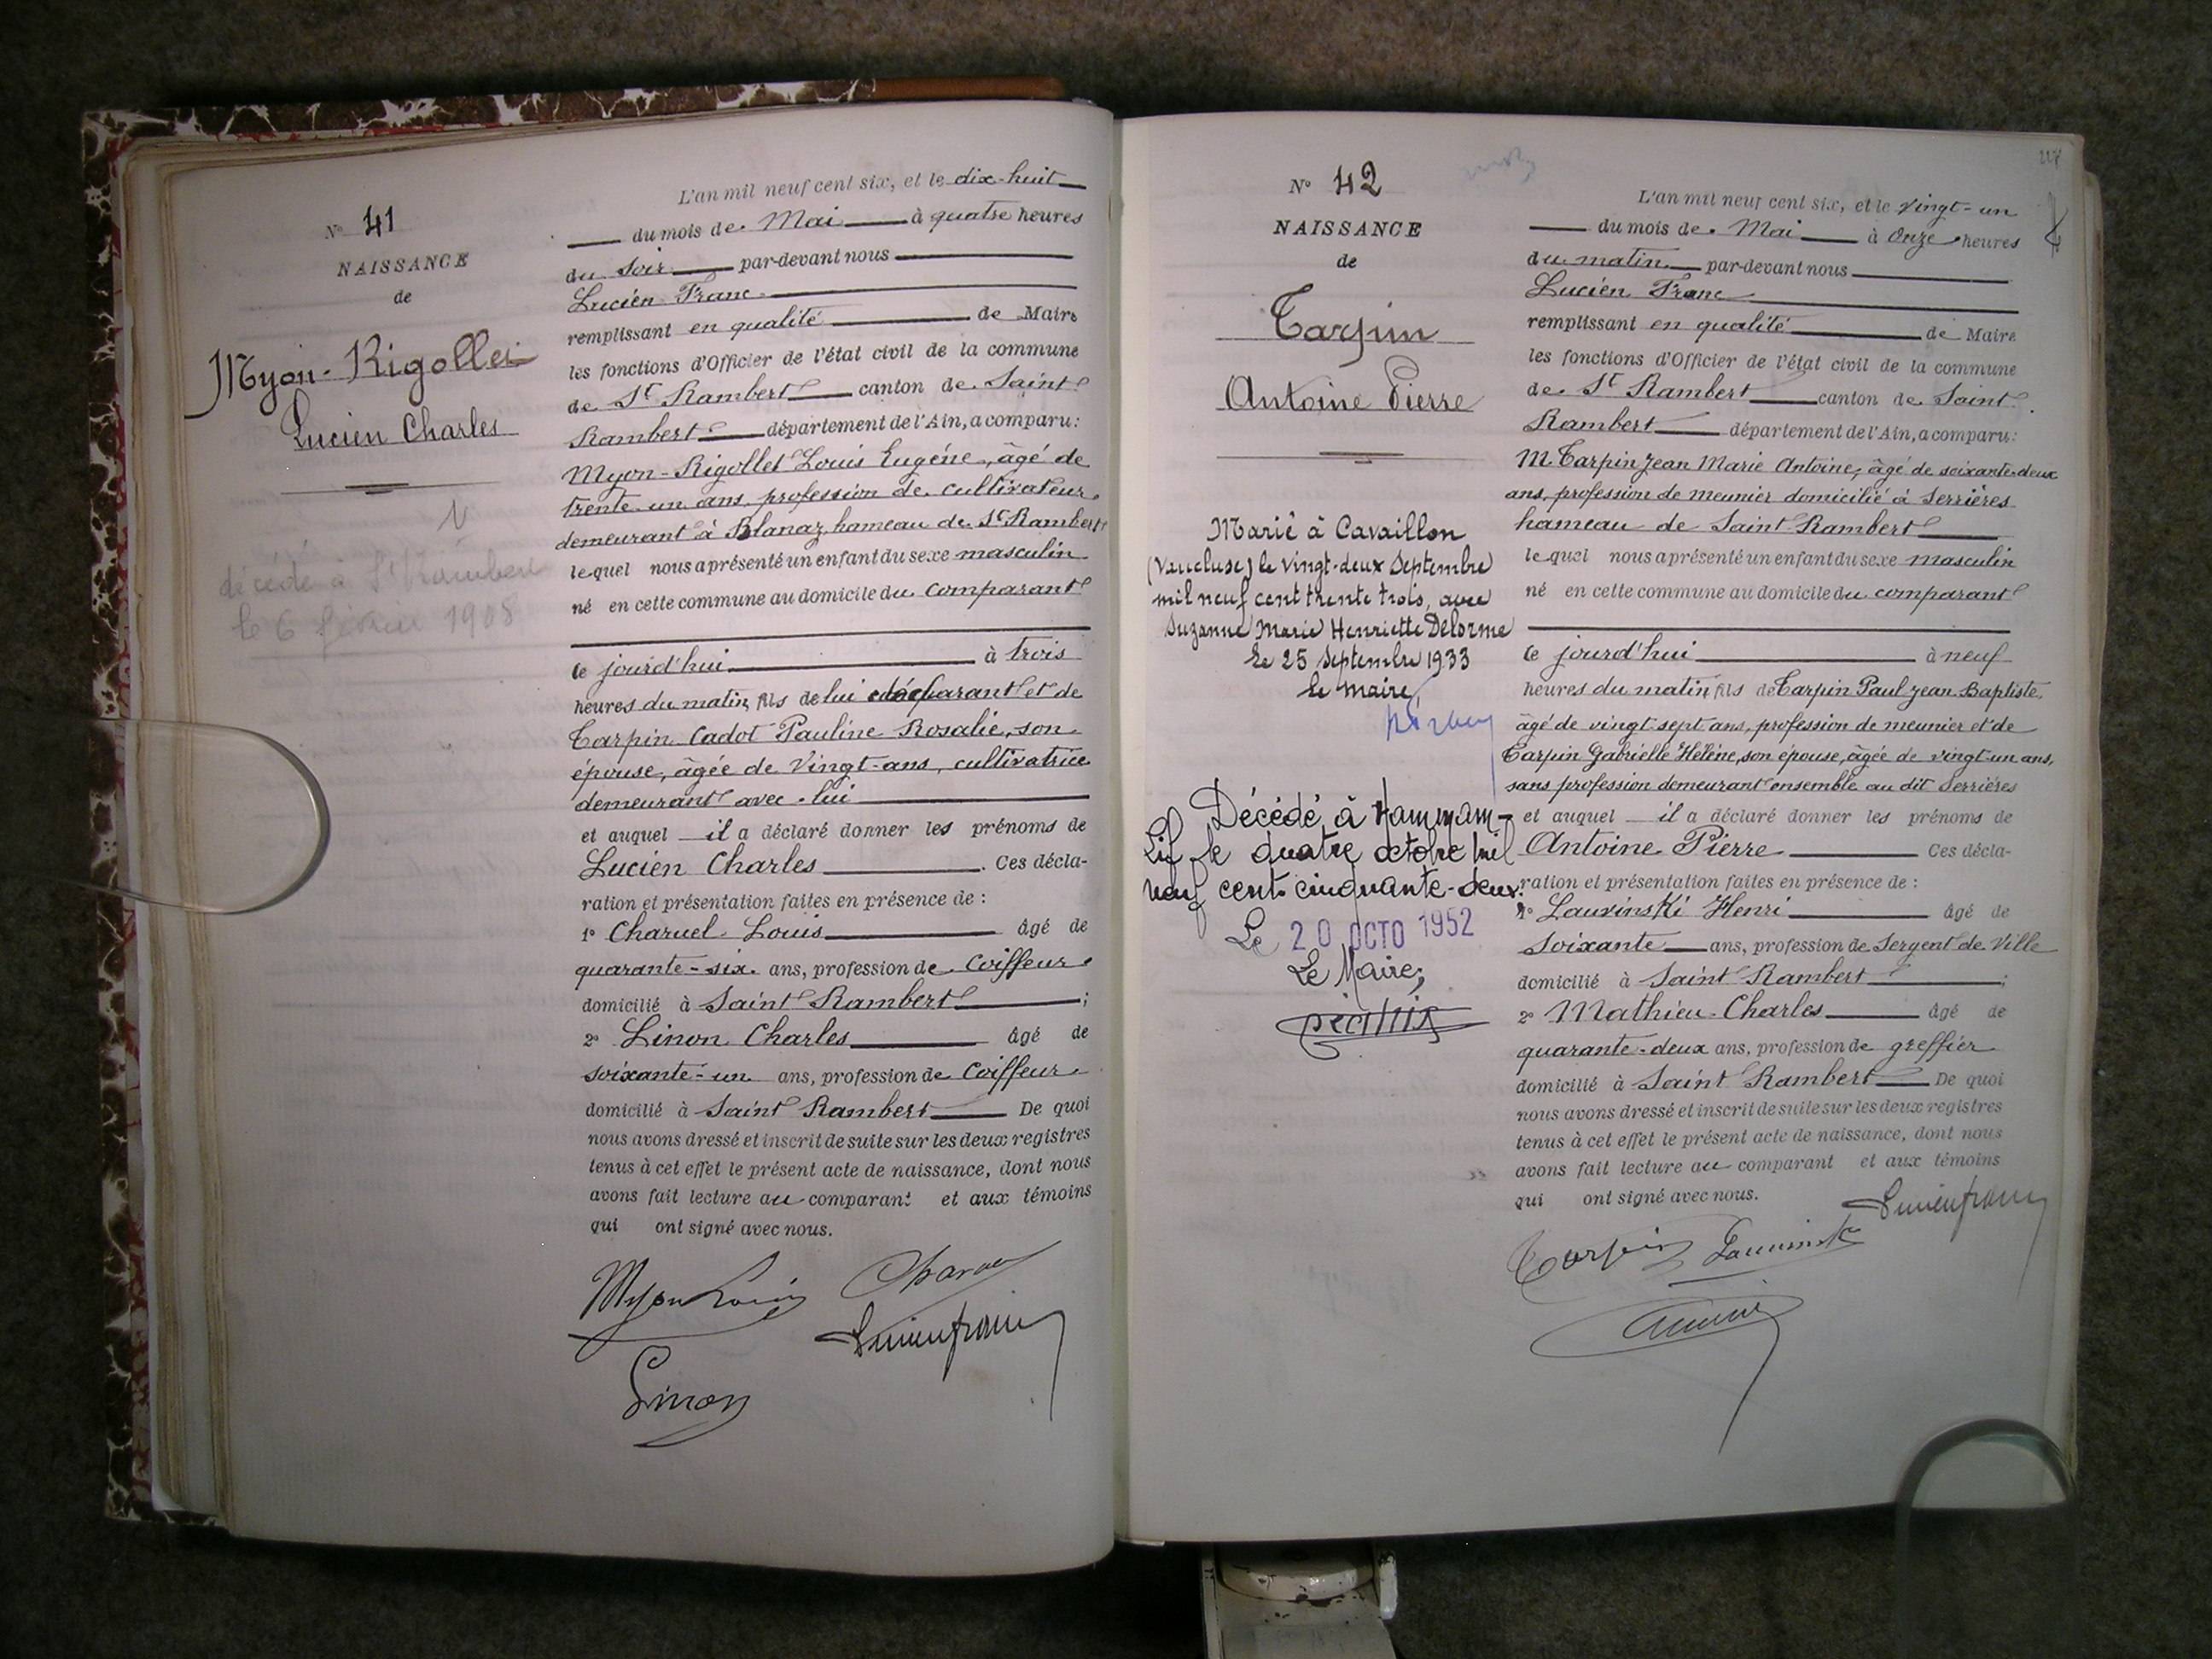 N° 41
NAISSANCE
de
Myon-Rigollet
Lucien Charles
décédé à St Rambert
le 6 février 1908
L'an mil neuf cent six, et le dix-huit
du mois de Mai à quatre heures
du soir par-devant nous
Lucien Franc
remplissant en qualité de Maire
les fonctions d'Officier de l'état civil de la commune
de St Rambert canton de Saint
Rambert département de l'Ain, a comparu:
Myon-Rigollet Louis Eugéne, âgé de
trente un ans, profession de cultivateur
demeurant à Blanaz hameau de St Rambert
lequel nous a présenté un enfant du sexe masculin
né en cette commune au domicile du comparant
le jourd'hui à trois
heures du matin, fils de lui déclarant et de
Tarpin Cadot Pauline Rosalie, son
épouse, âgée de vingt-ans, cultivatrice
demeurant avec lui
et auquel il a déclaré donner les prénoms de
Lucien Charles. Ces décla-
ration et présentation faites en présence de :
1° Charuel Louis âgé de
quarante-six ans, profession de Coiffeur
domicilié à Saint Rambert ;
2° Linon Charles âgé de
soixante-un ans, profession de Coiffeur
domicilié à Saint Rambert De quoi
nous avons dressé et inscrit de suite sur les deux registres
tenus à cet effet le présent acte de naissance, dont nous
avons fait lecture au comparant et aux témoins
qui ont signé avec nous.
Myon Louis Charuel
Lucien franc
Linon
N° 42
NAISSANCE
de
Tarpin
Antoine Pierre
Marié à Cavaillon
(Vaucluse) le vingt-deux Septembre
mil neuf cent trente trois, avec
Suzanne Marie Henriette Delorme
Le 25 Septembre 1933
le maire,
Décédé à Hammam-
Lif le quatre octobre mil
neuf cent cinquante-deux.
Le 20 OCTO 1952
Le Maire,
L'an mil neuf cent six, et le vingt-un
du mois de Mai à Onze heures
du matin par-devant nous
Lucien Franc
remplissant en qualité de Maire
les fonctions d'Officier de l'état civil de la commune
de St Rambert canton de Saint
Rambert département de l'Ain, a comparu:
M. Tarpin Jean Marie Antoine, âgé de soixante-deux
ans, profession de meunier domicilié à Serrières
hameau de Saint Rambert
lequel nous a présenté un enfant du sexe masculin
né en cette commune au domicile du comparant
le jourd'hui à neuf
heures du matin, fils de Tarpin Paul Jean-Baptiste,
âgé de vingt-sept ans, profession de meunier et de
Tarpin Gabrielle Hélène, son épouse, âgée de vingt-un ans,
sans profession demeurant ensemble au dit Serrières
et auquel il a déclaré donner les prénoms de
Antoine Pierre Ces décla-
ration et présentation faites en présence de :
1° Lauxinski Henri âgé de
soixante ans, profession de Sergent de Ville
domicilié à Saint Rambert ;
2° Mathieu Charles âgé de
quarante-deux ans, profession de greffier
domicilié à Saint Rambert De quoi
nous avons dressé et inscrit de suite sur les deux registres
tenus à cet effet le présent acte de naissance, dont nous
avons fait lecture au comparant et aux témoins
qui ont signé avec nous. Lucien franc
Tarpin